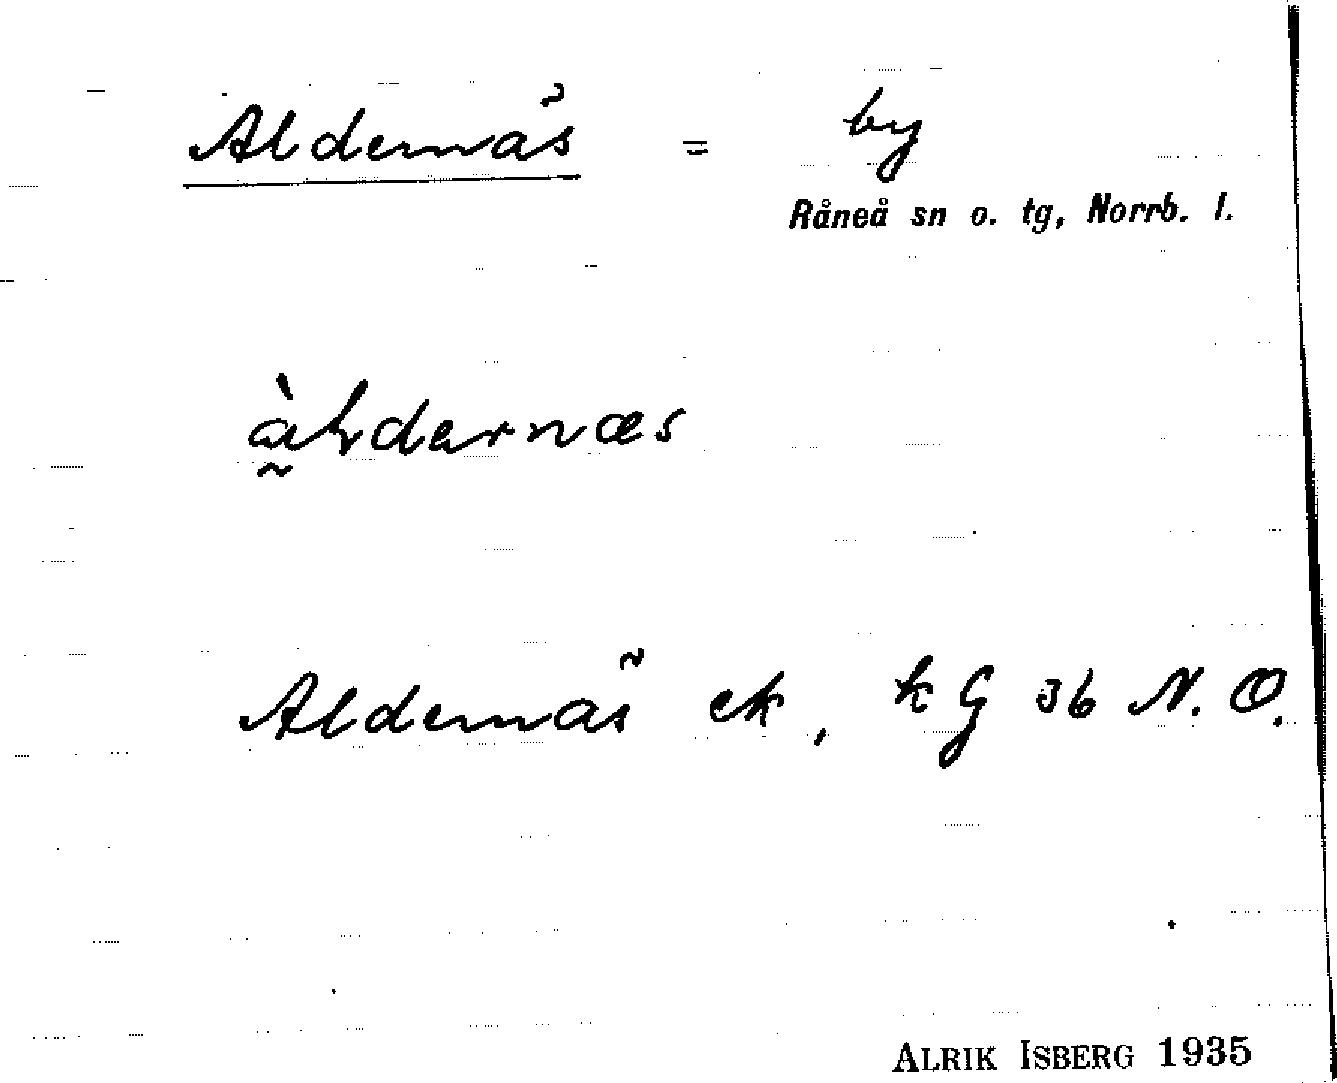 Aldernäs = by
Råneå sn o. tg, Norrb. l.
àldernæs
Aldernäs ek, kG 36 N.O.
ALRIK ISBERG 1935